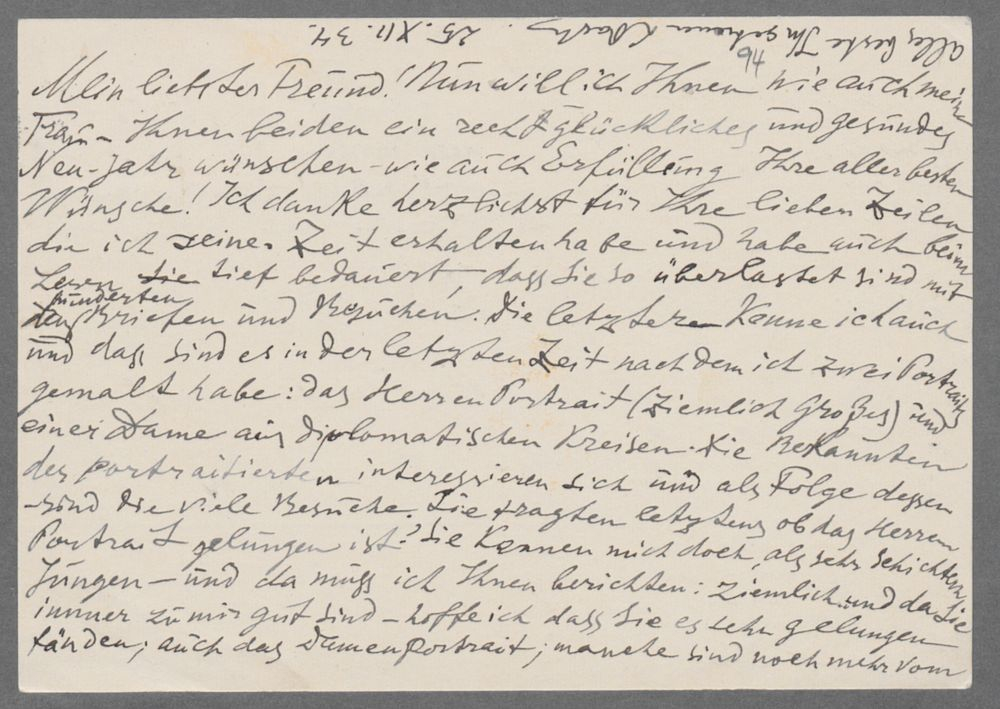 Mein liebster Freund! Nun will ich Ihnen wie auch meine
Frau – Ihnen beiden ein recht glückliches und gesundes
Neu-Jahr wünschen – wie auch Erfüllung Ihre allerbesten
Wünsche! Ich danke herzlichst für Ihre lieben Zeilen
die ich seiner Zeit erhalten habe und habe auch beim
Lesen tief bedauert, dass Sie so überlastet sind mit
hunderten
den Briefen und Besuchen. Die letzteren Kenne ich auch
und dass sind es in der letzten Zeit nachdem ich zwei Portraits
gemalt habe: das Herren Portrait (ziemlich Großes) und
einer Dame aus diplomatischen Kreisen. Die Bekannten
der portraitierten interessieren sich und als Folge dessen
sind die viele Besuche. Sie fragten letztens ob das Herren
Portrait gelungen ist? Sie Kennen mich doch, als sehr schichtern
Jungen – und da muss ich Ihnen berichten: ziemlich und da Sie
immer zu mir gut sind – hoffe ich dass Sie es sehr gelungen
fänden; auch das Damenportrait; manche sind noch mehr vom
alles beste Ihr
25.XII.34.
46